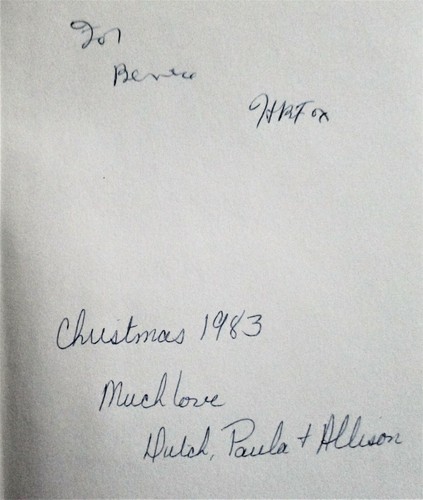 For
HRFox
Christmas 1983
Much love
Dutch, Paula + Allison